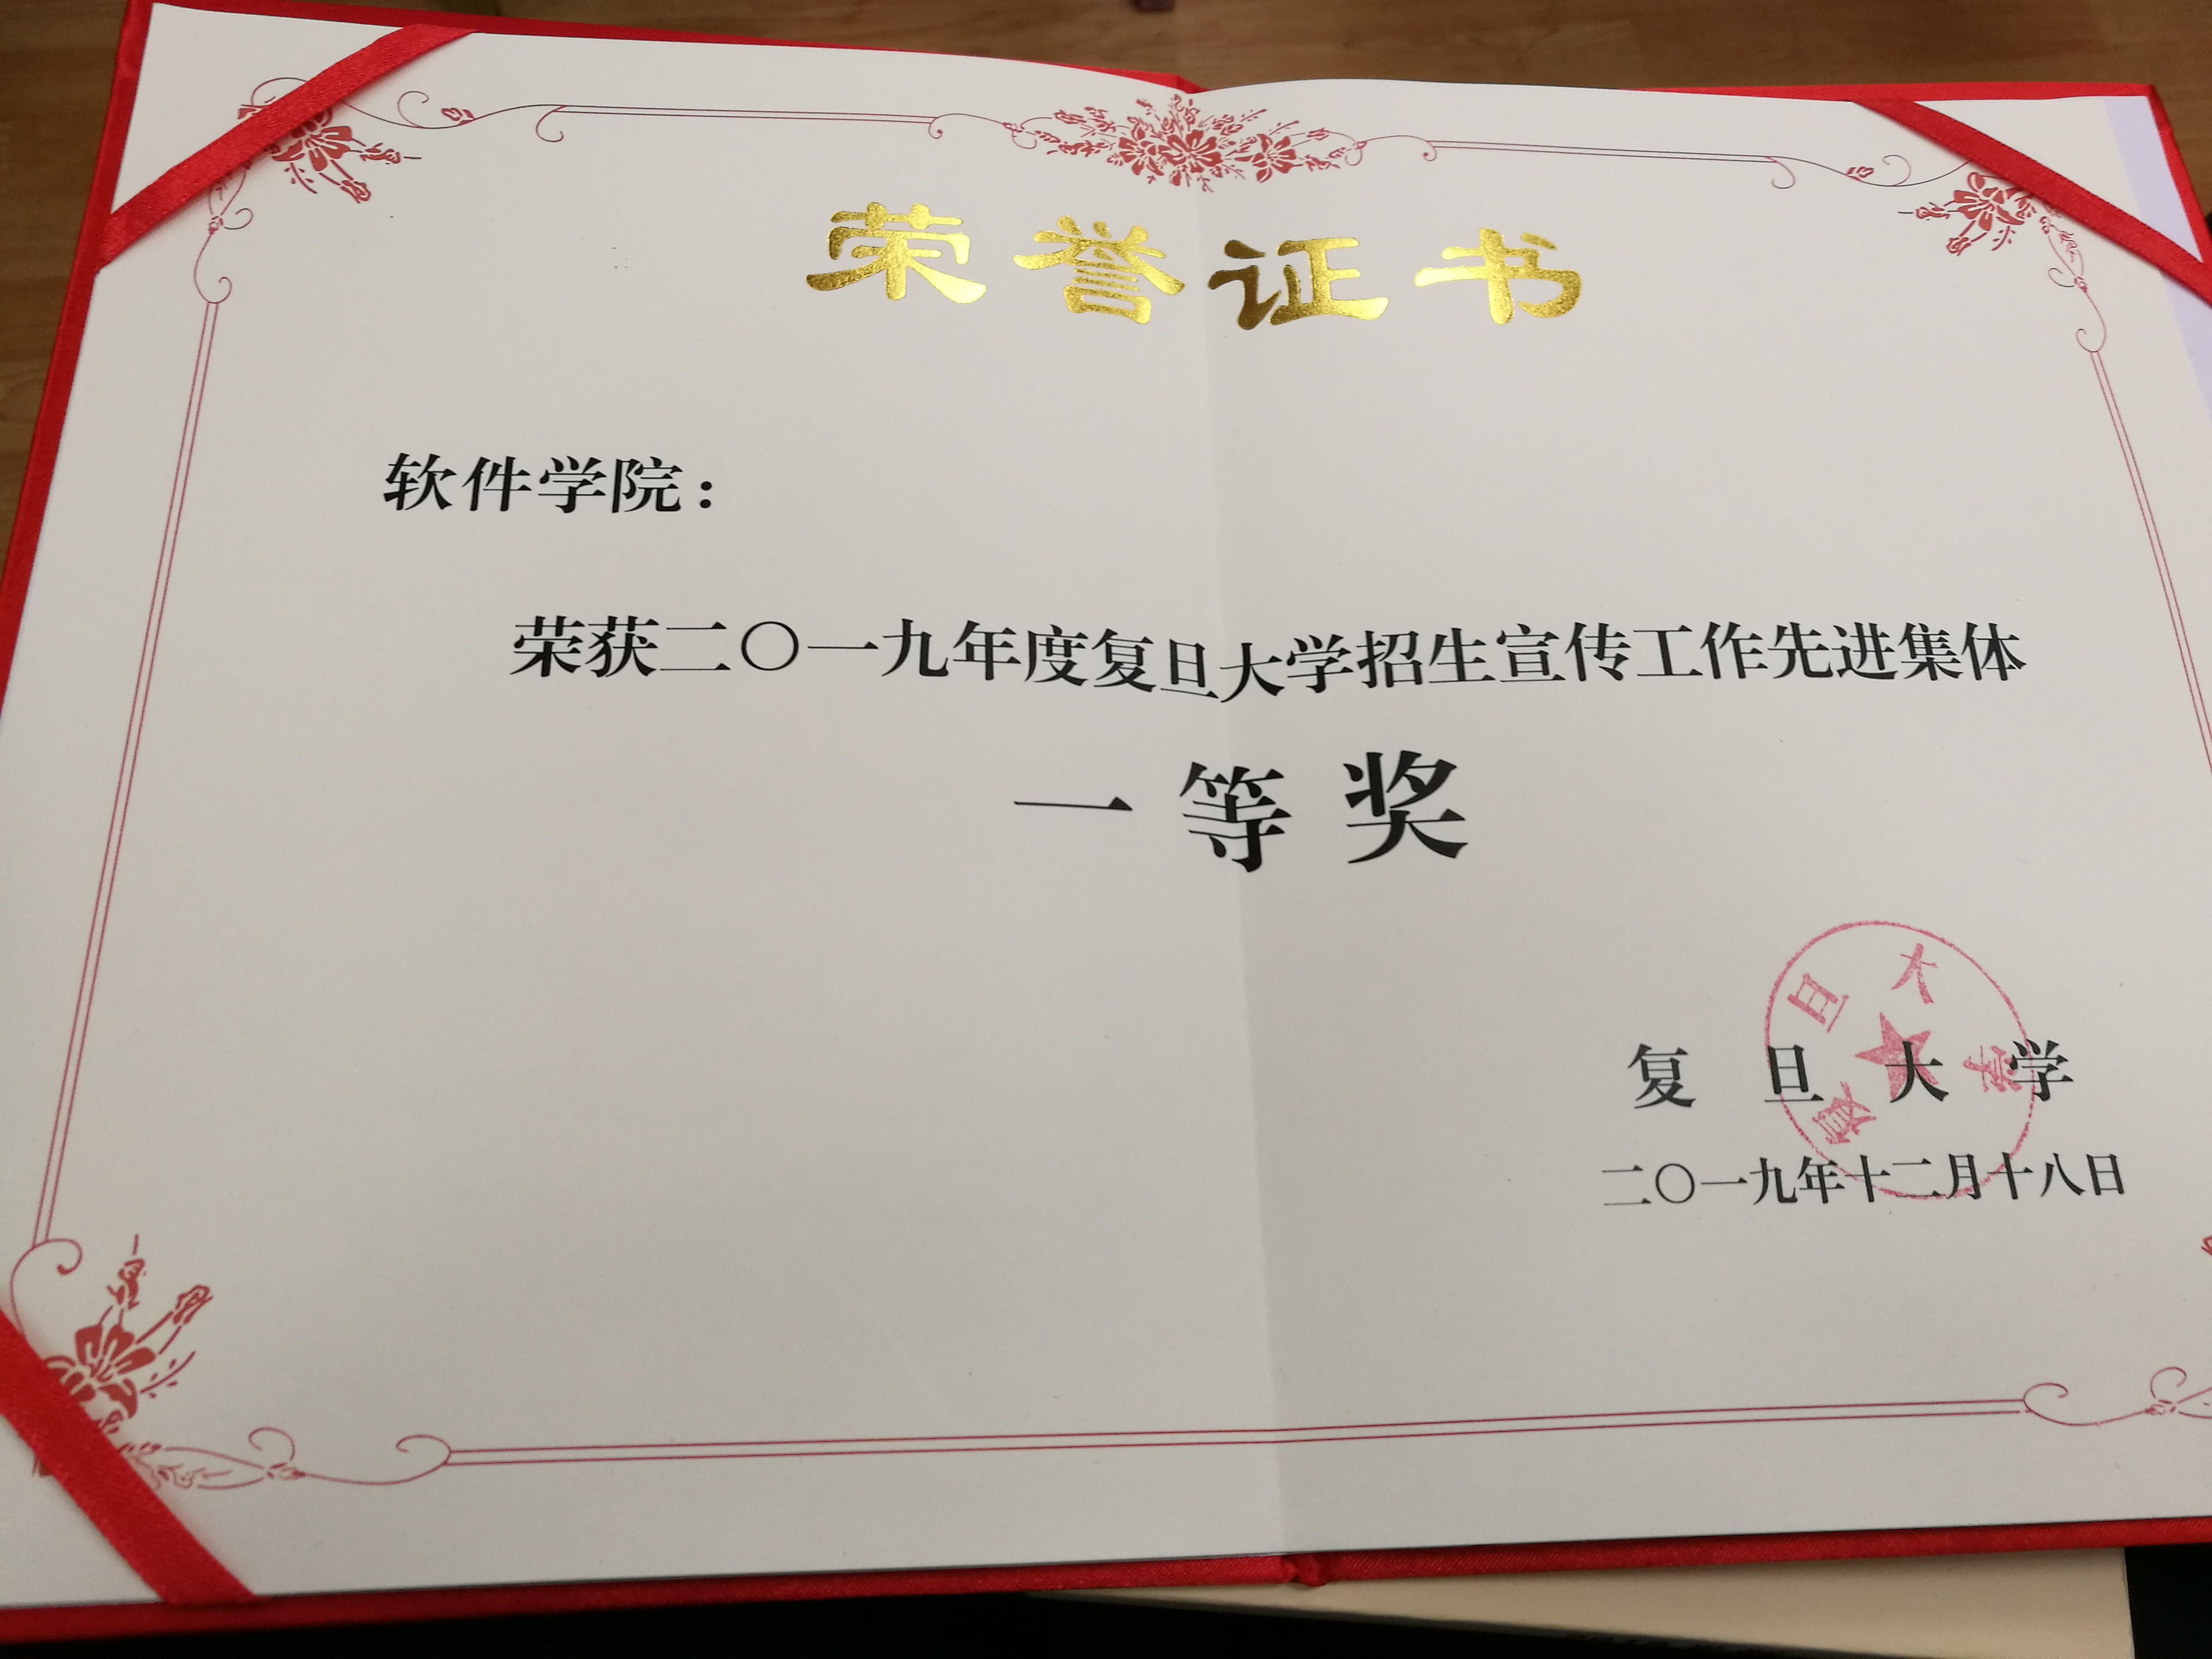 荣誉证书
软件学院：
荣获二〇一九年度复旦大学招生宣传工作先进集体
一等奖
复旦大学
复旦大学
二〇一九年十二月十八日